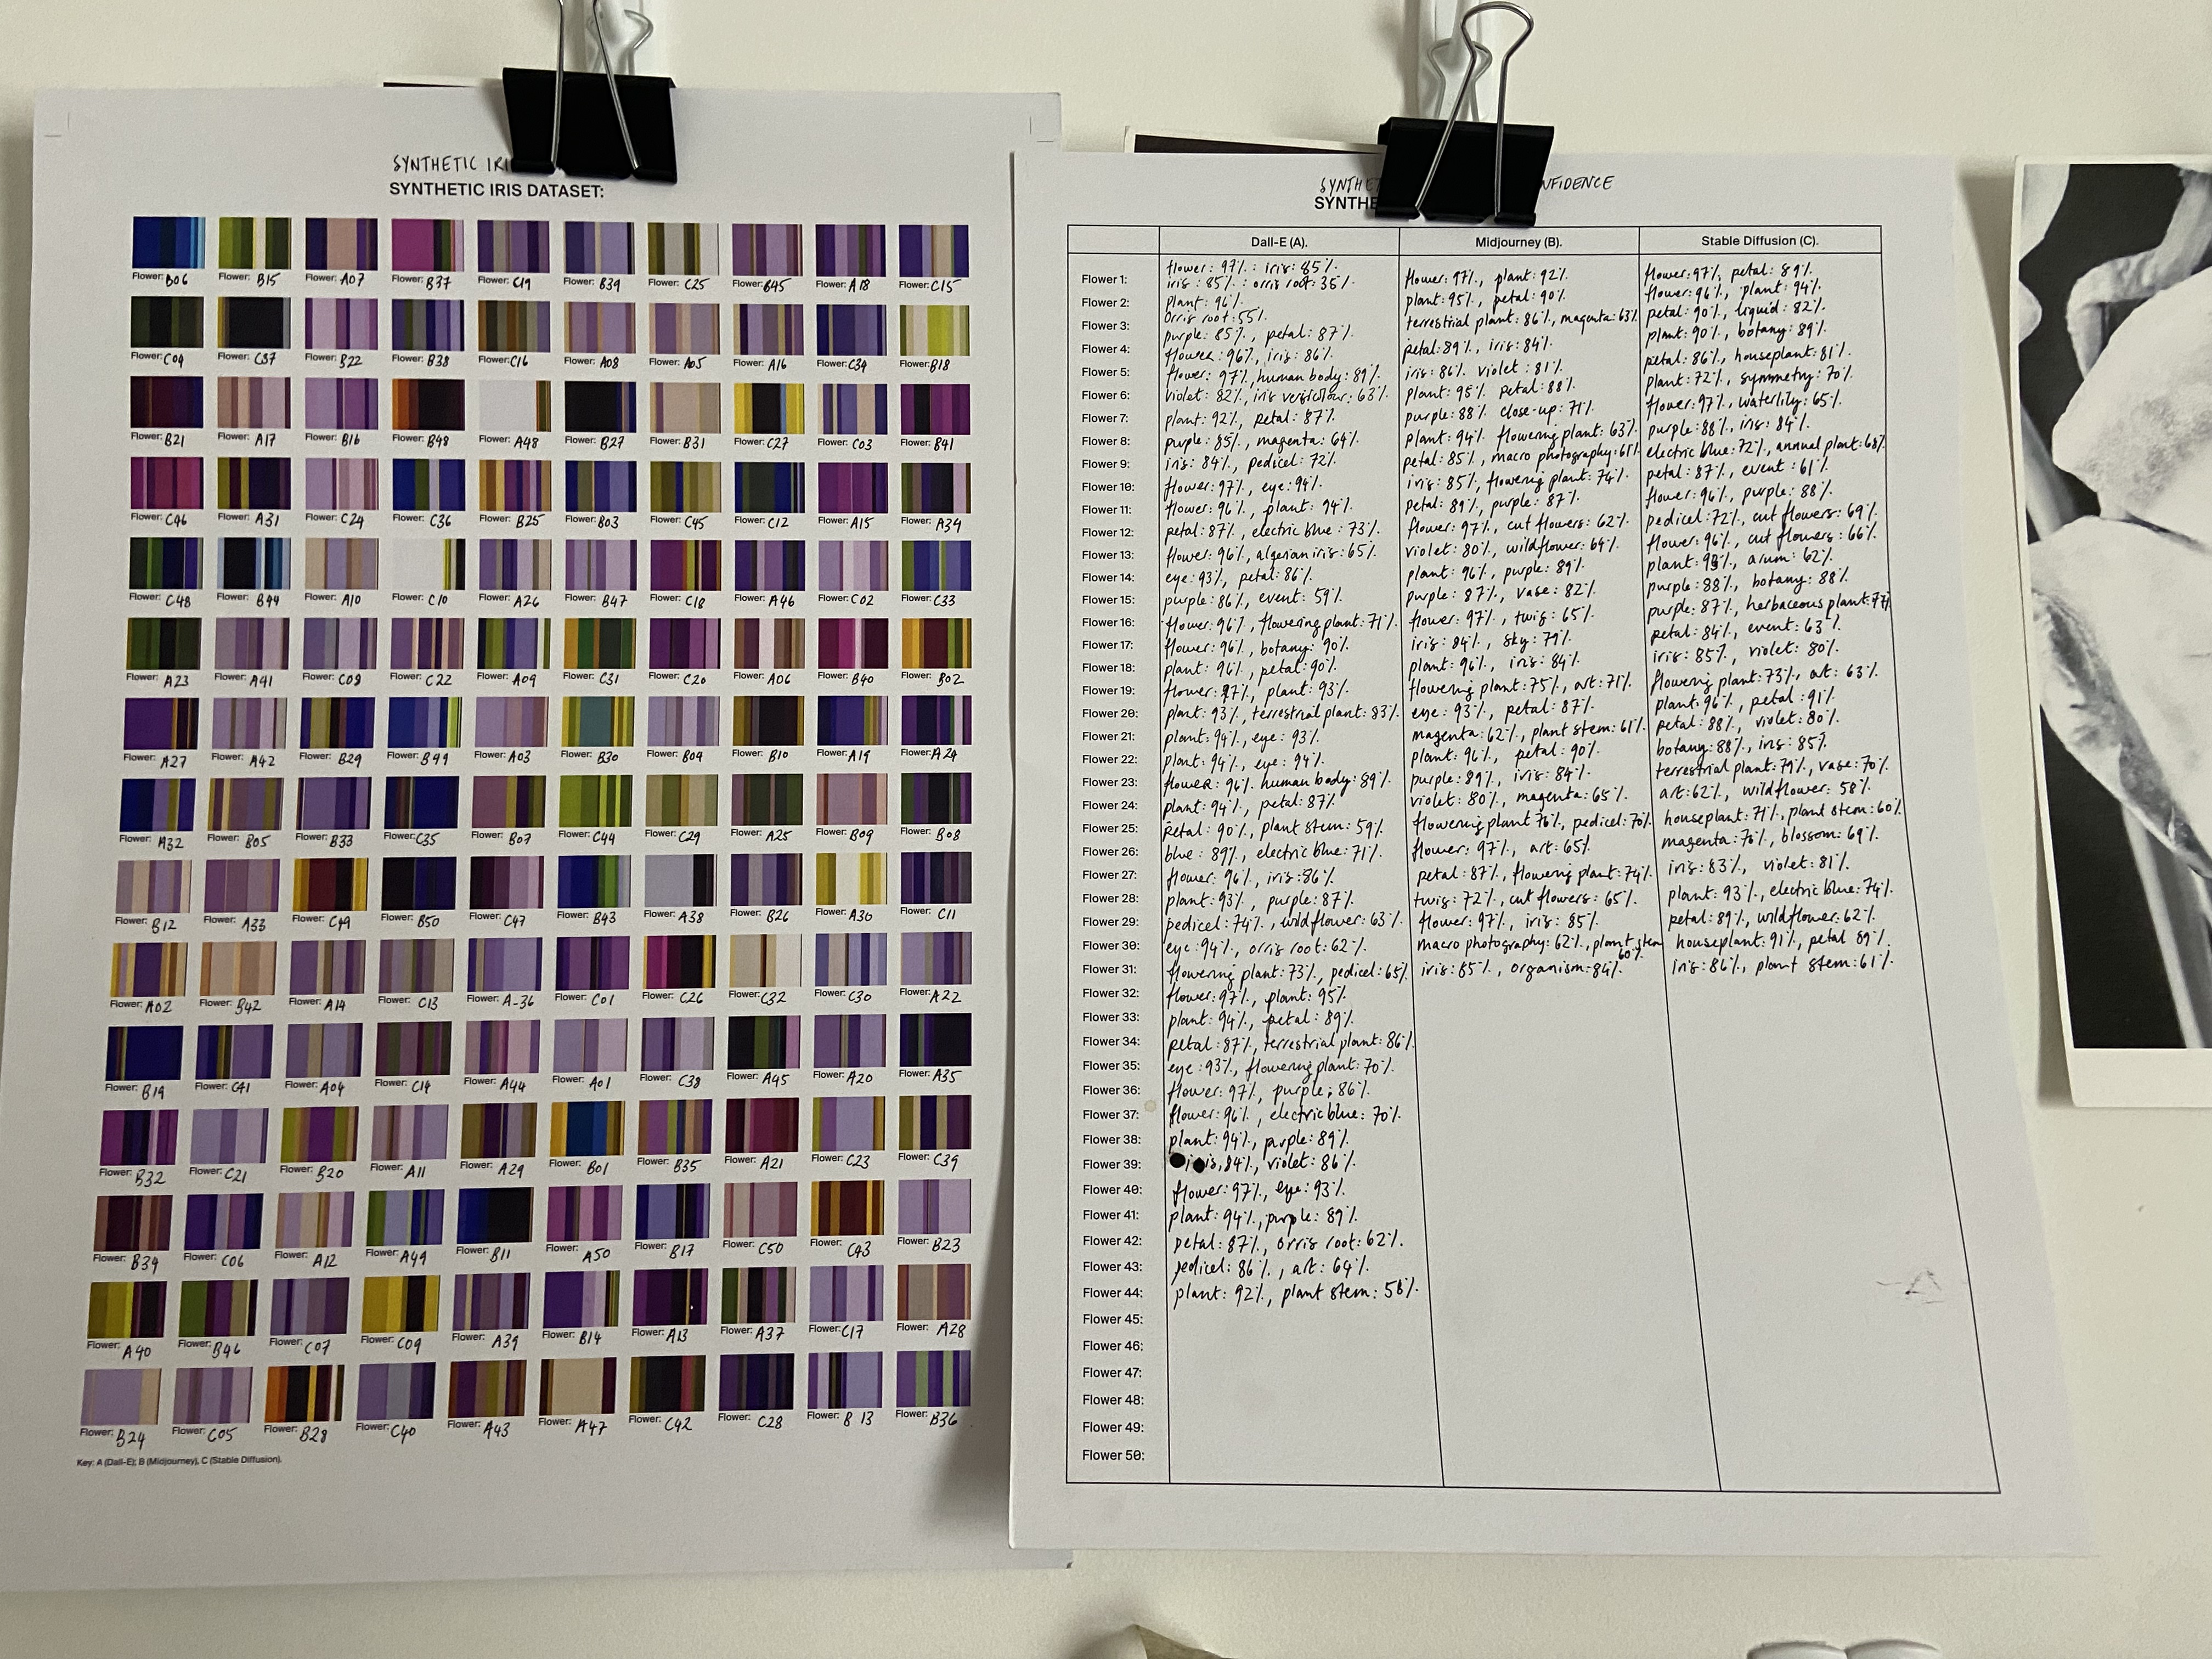 SYNTHETIC IRI
SYNTHETIC IRIS DATASET:
Flower: B06 Flower: B15 Flower: A07 Flower: B37 Flower: C19 Flower: B39 Flower: C25 Flower: B45 Flower: A18 Flower: C15
Flower: C04 Flower: C37 Flower: B22 Flower: B38 Flower: C16 Flower: A08 Flower: A05 Flower: A16 Flower: C34 Flower: B18
Flower: B21 Flower: A17 Flower: B16 Flower: B48 Flower: A48 Flower: B27 Flower: B31 Flower: C27 Flower: C03 Flower: B41
Flower: C46 Flower: A31 Flower: C24 Flower: C36 Flower: B25 Flower: B03 Flower: C45 Flower: C12 Flower: A15 Flower: A34
Flower: C48 Flower: B44 Flower: A10 Flower: C10 Flower: A26 Flower: B47 Flower: C18 Flower: A46 Flower: C02 Flower: C33
Flower: A23 Flower: A41 Flower: C08 Flower: C22 Flower: A09 Flower: C31 Flower: C20 Flower: A06 Flower: B40 Flower: B02
Flower: A27 Flower: A42 Flower: B29 Flower: B49 Flower: A03 Flower: B30 Flower: B04 Flower: B10 Flower: A19 Flower: A24
Flower: A32 Flower: B05 Flower: B33 Flower: C35 Flower: B07 Flower: C44 Flower: C29 Flower: A25 Flower: B09 Flower: B08
Flower: B12 Flower: A33 Flower: C49 Flower: B50 Flower: C47 Flower: B43 Flower: A38 Flower: B26 Flower: A30 Flower: C11
Flower: A02 Flower: B42 Flower: A14 Flower: C13 Flower: A-36 Flower: C01 Flower: C26 Flower: C32 Flower: C30 Flower: A22
Flower: B19 Flower: C41 Flower: A04 Flower: C14 Flower: A44 Flower: A01 Flower: C38 Flower: A45 Flower: A20 Flower: A35
Flower: B32 Flower: C21 Flower: B20 Flower: A11 Flower: A29 Flower: B01 Flower: B35 Flower: A21 Flower: C23 Flower: C39
Flower: B34 Flower: C06 Flower: A12 Flower: A49 Flower: B11 Flower: A50 Flower: B17 Flower: C50 Flower: C43 Flower: B23
Flower: A40 Flower: B46 Flower: C07 Flower: C09 Flower: A39 Flower: B14 Flower: A13 Flower: A37 Flower: C17 Flower: A28
Flower: B24 Flower: C05 Flower: B28 Flower: C40 Flower: A43 Flower: A47 Flower: C42 Flower: C28 Flower: B 13 Flower: B36
Key: A (Dall-E); B (Midjourney), C (Stable Diffusion).
SYNTHE NFIDENCE
SYNTHE
Dall-E (A). Midjourney (B). Stable Diffusion (C).
flower: 97% : iris: 85%
Flower 1: iris: 85% : orris root: 35% flower: 97%, plant: 92% flower: 97%, petal: 89%
Flower 2: plant: 96% plant: 95%, petal: 90% flower: 96%, plant: 94%
orris root: 55%
Flower 3: purple: 85%, petal: 87% terrestrial plant: 86%, magenta: 63% petal: 90%, liquid: 82%
Flower 4: flower: 96%, iris: 86% petal: 89%, iris: 84% plant: 90%, botany: 89%
Flower 5: flower: 97%, human body: 89% iris: 86% violet: 81% petal: 86%, houseplant: 81%
Flower 6: violet: 82%, iris versicolour: 63% plant: 95% petal: 88% plant: 72%, symmetry: 70%
Flower 7: plant: 92%, petal: 87% purple: 88% close-up: 71% flower: 97%, waterlily: 65%
Flower 8: purple: 85%, magenta: 64% plant: 94% flowering plant: 63% purple: 88%, iris: 84%
Flower 9: iris: 84%, pedicel: 72% petal: 85%, macro photography: 61% electric blue: 72%, annual plant: 68%
Flower 10: flower: 97%, eye: 94% iris: 85%, flowering plant: 74% petal: 87%, event: 61%
Flower 11: flower: 96%, plant: 94% petal: 89%, purple: 87% flower: 96%, purple: 88%
Flower 12: petal: 87%, electric blue: 73% flower: 97%, cut flowers: 62% pedicel: 72%, cut flowers: 69%
Flower 13: flower: 96%, algerian iris: 65% violet: 80%, wildflower: 64% flower: 96%, cut flowers: 66%
Flower 14: eye: 93%, petal: 86% plant: 96%, purple: 89% plant: arum: 62%
Flower 15: purple: 86%, event: 59% purple: 87%, vase: 82% purple: 88%, botany: 88%
Flower 16: flower: 96%, flowering plant: 71% flower: 97%, twig: 65% purple: 87%, herbaceous plant: 77%
Flower 17: flower: 96%, botany: 90% iris: 84%, sky: 79% petal: 84%, event: 63%
Flower 18: plant: 96%, petal: 90% plant: 96%, iris: 84% iris: 85%, violet: 80%
Flower 19: flower: 97%, plant: 93% flowering plant: 75%, art: 71% flowering plant: 73%, art: 63%
Flower 20: plant: 93%, terrestrial plant: 83% eye: 93%, petal: 87% plant: 96%, petal: 91%
Flower 21: plant: 94%, eye: 93% magenta: 62%, plant stem: 61% petal: 88%, violet: 80%
Flower 22: plant: 94%, eye: 94% plant: 96%, petal: 90% botany: 88%, iris: 85%
Flower 23: flower: 96% human body: 89% purple: 89%, iris: 84% terrestrial plant: 79%, vase: 70%
Flower 24: plant: 94%, petal: 87% violet: 80%, magenta: 65% art: 62%, wildflower: 58%
Flower 25: petal: 90%, plant stem: 59% flowering plant 76%, pedicel: 70% houseplant: 71%, plant stem: 60%
Flower 26: blue: 89%, electric blue: 71% flower: 97%, art: 65% magenta: 70%, blossom: 69%
Flower 27: flower: 96%, iris: 86% petal: 87%, flowering plant: 74% iris: 83%, violet: 81%
Flower 28: plant: 93%, purple: 87% twig: 72%, cut flowers: 65% plant: 93%, electric blue: 74%
Flower 29: pedicel: 74%, wildflower: 63% flower: 97%, iris: 85% petal: 89%, wildflower: 62%
Flower 30: eye: 94%, orris root: 62% macro photography: 62%, plant stem 60% houseplant: 91%, petal 89%
Flower 31: flowering plant: 73%, pedicel: 65% iris: 85%, organism: 84% iris: 86%, plant stem: 61%
Flower 32: flower: 97%, plant: 95%
Flower 33: plant: 94%, petal: 89%
Flower 34: petal: 87%, terrestrial plant: 86%
Flower 35: eye: 93%, flowering plant: 70%
Flower 36: flower: 97%, purple: 86%
Flower 37: flower: 96%, electric blue: 70%
Flower 38: plant: 94%, purple: 89%
Flower 39: iris, 84%, violet: 86%
Flower 40: flower: 97%, eye: 93%
Flower 41: plant: 94%, purple: 89%
Flower 42: petal: 87%, orris root: 62%
Flower 43: pedicel: 86%, art: 64%
Flower 44: plant: 92%, plant stem: 58%
Flower 45:
Flower 46:
Flower 47:
Flower 48:
Flower 49:
Flower 50: